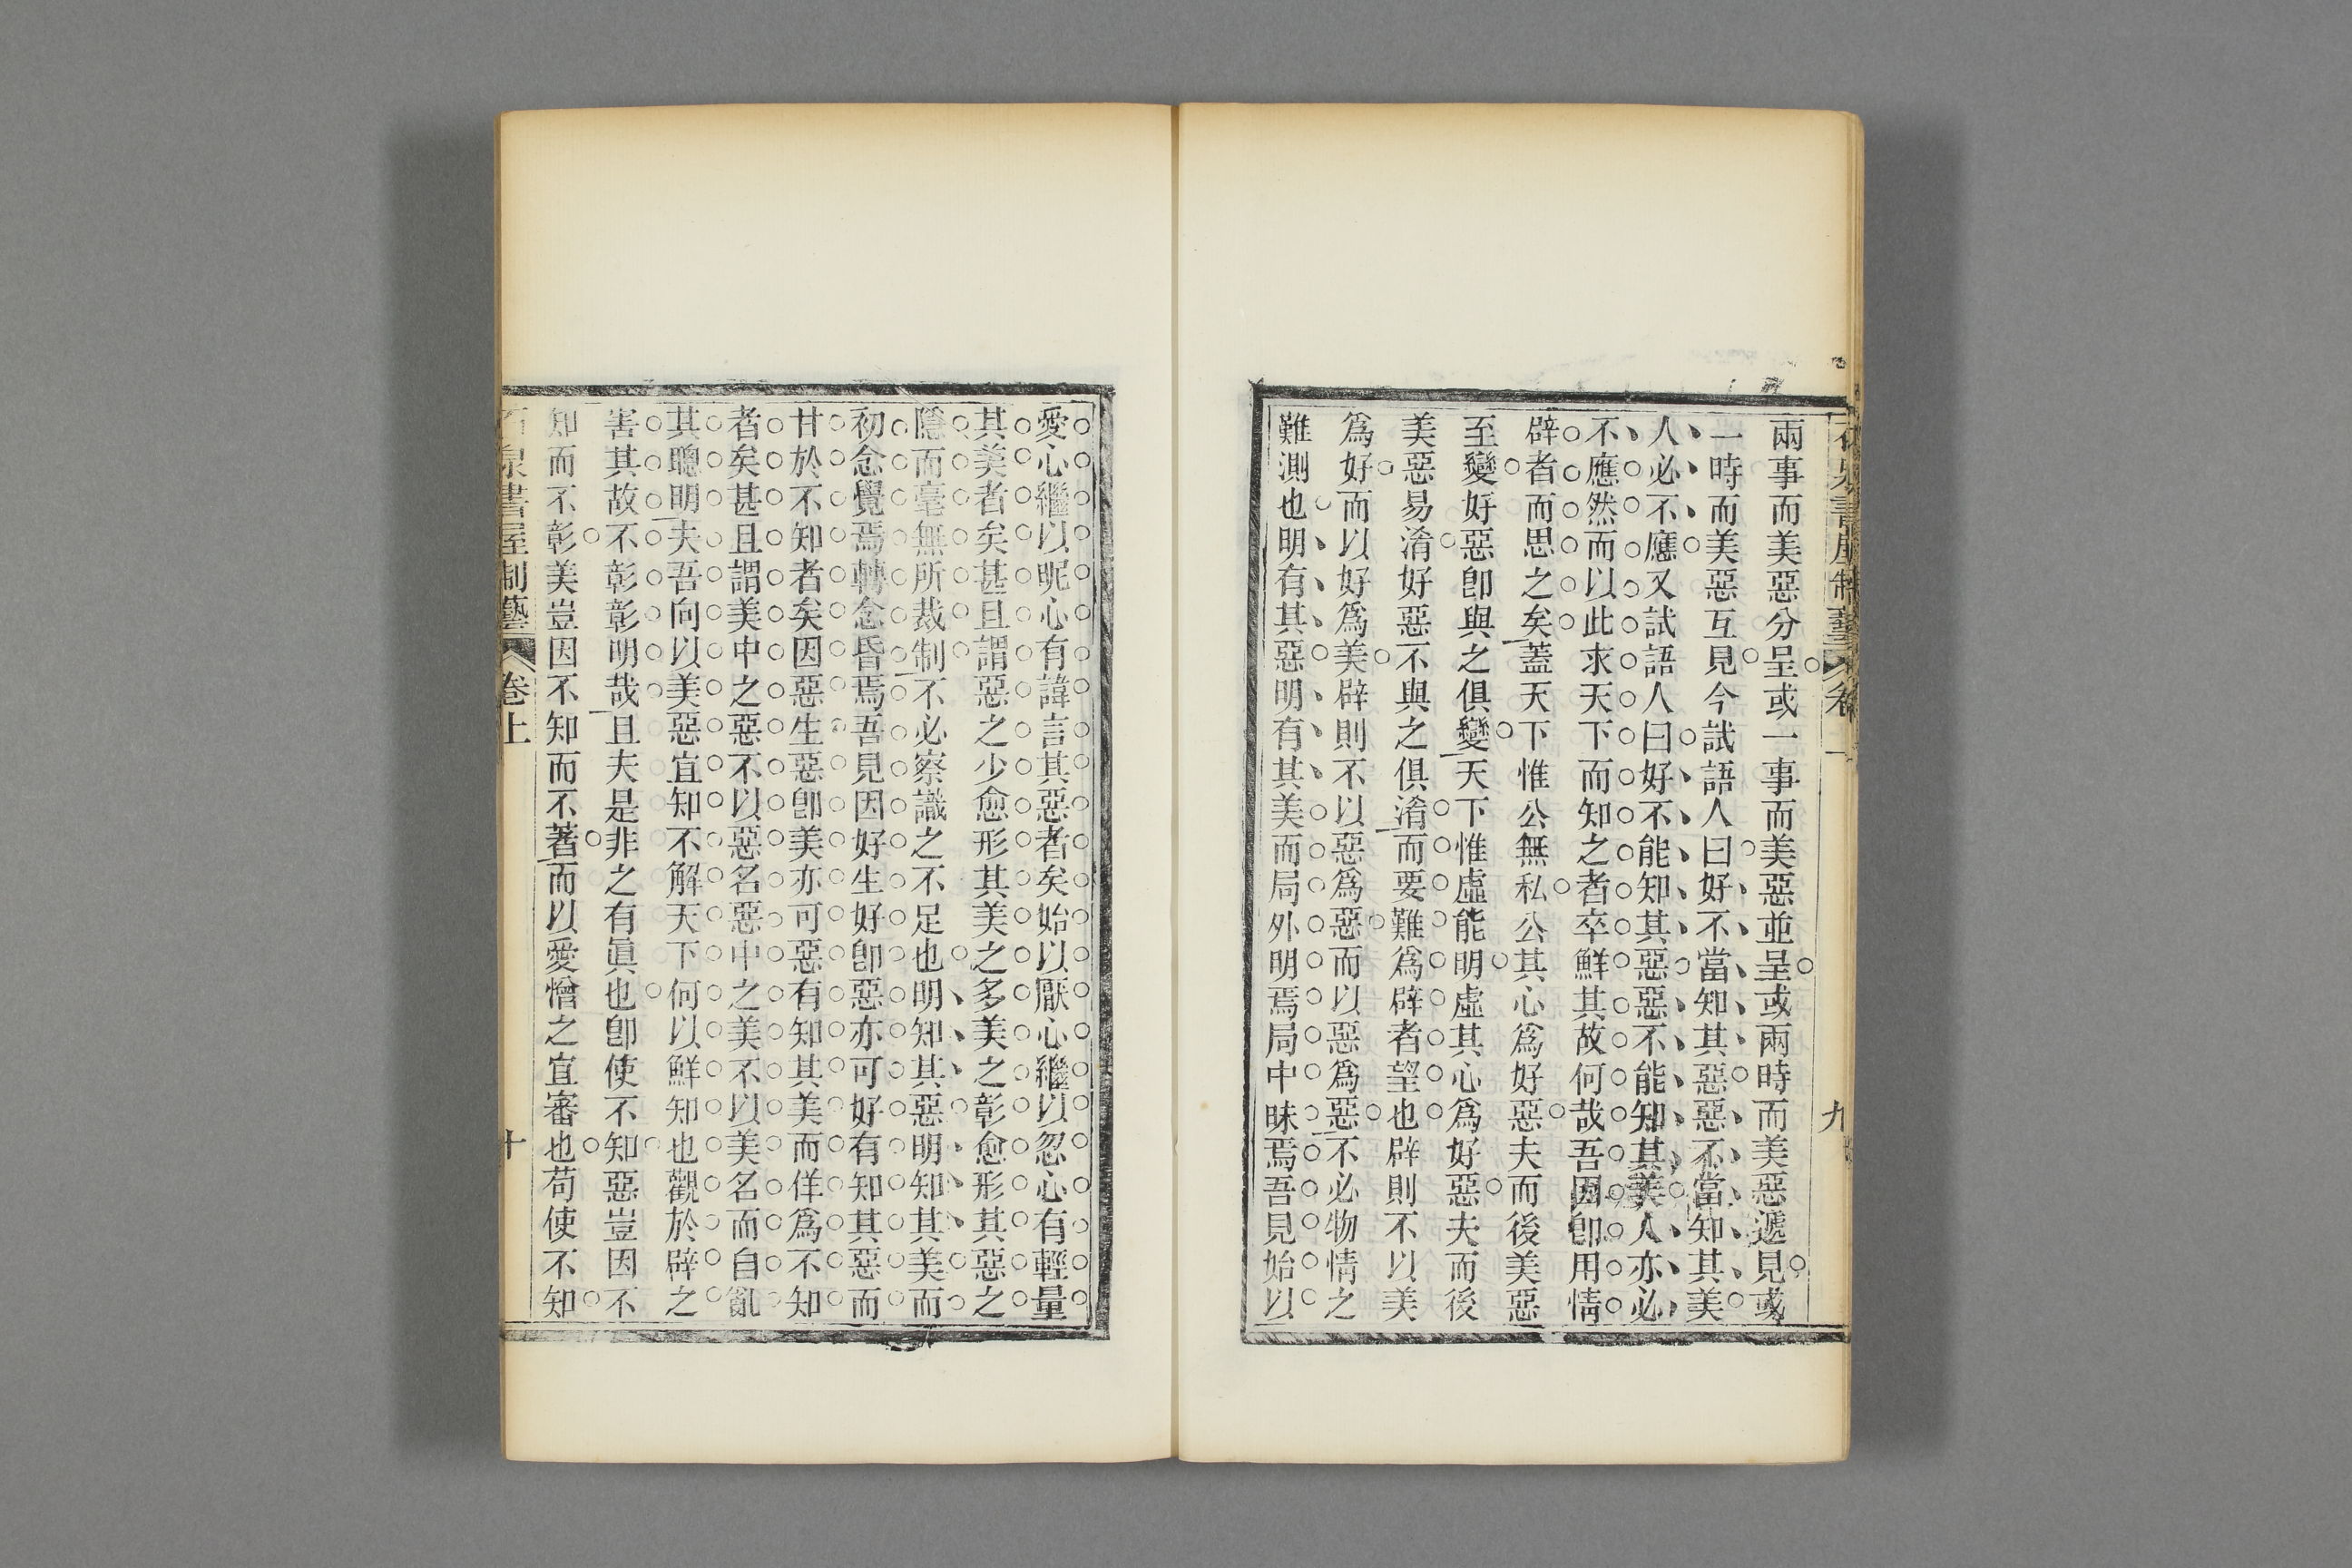 兩事而美惡分呈或一事而美惡並呈或兩時而美惡遞見或
一時而美惡互見今試語人曰好不當知其惡惡不當知其美
人必不應又試語人曰好不能知其惡惡不能知其美人亦必
不應然而以此求天下而知之者卒鮮其故何哉吾因卽用情
辟者而思之矣蓋天下惟公無私公其心爲好惡夫而後美惡
至變好惡卽與之俱變天下惟虛能明虛其心爲好惡夫而後
美惡易淆好惡不與之俱淆而要難爲辟者望也辟則不以美
爲好而以好爲美辟則不以惡爲惡而以惡爲惡不必物情之
難測也明有其惡明有其美而局外明焉局中昧焉吾見始以
九
愛心繼以昵心有諱言其惡者矣始以厭心繼以忽心有輕量
其美者矣甚且謂惡之少愈形其美之多美之彰愈形其惡之
隱而毫無所裁制不必察識之不足也明知其惡明知其美而
初念覺焉轉念昏焉吾見因好生好卽惡亦可好有知其惡而
甘於不知者矣因惡生惡卽美亦可惡有知其美而佯爲不知
者矣甚且謂美中之惡不以惡名惡中之美不以美名而自亂
其聰明夫吾向以美惡宜知不解天下何以鮮知也觀於辟之
害其故不彰彰明哉且夫是非之有眞也卽使不知惡豈因不
知而不彰美豈因不知而不著而以愛憎之宜審也苟使不知
石泉書屋制藝 卷上 十